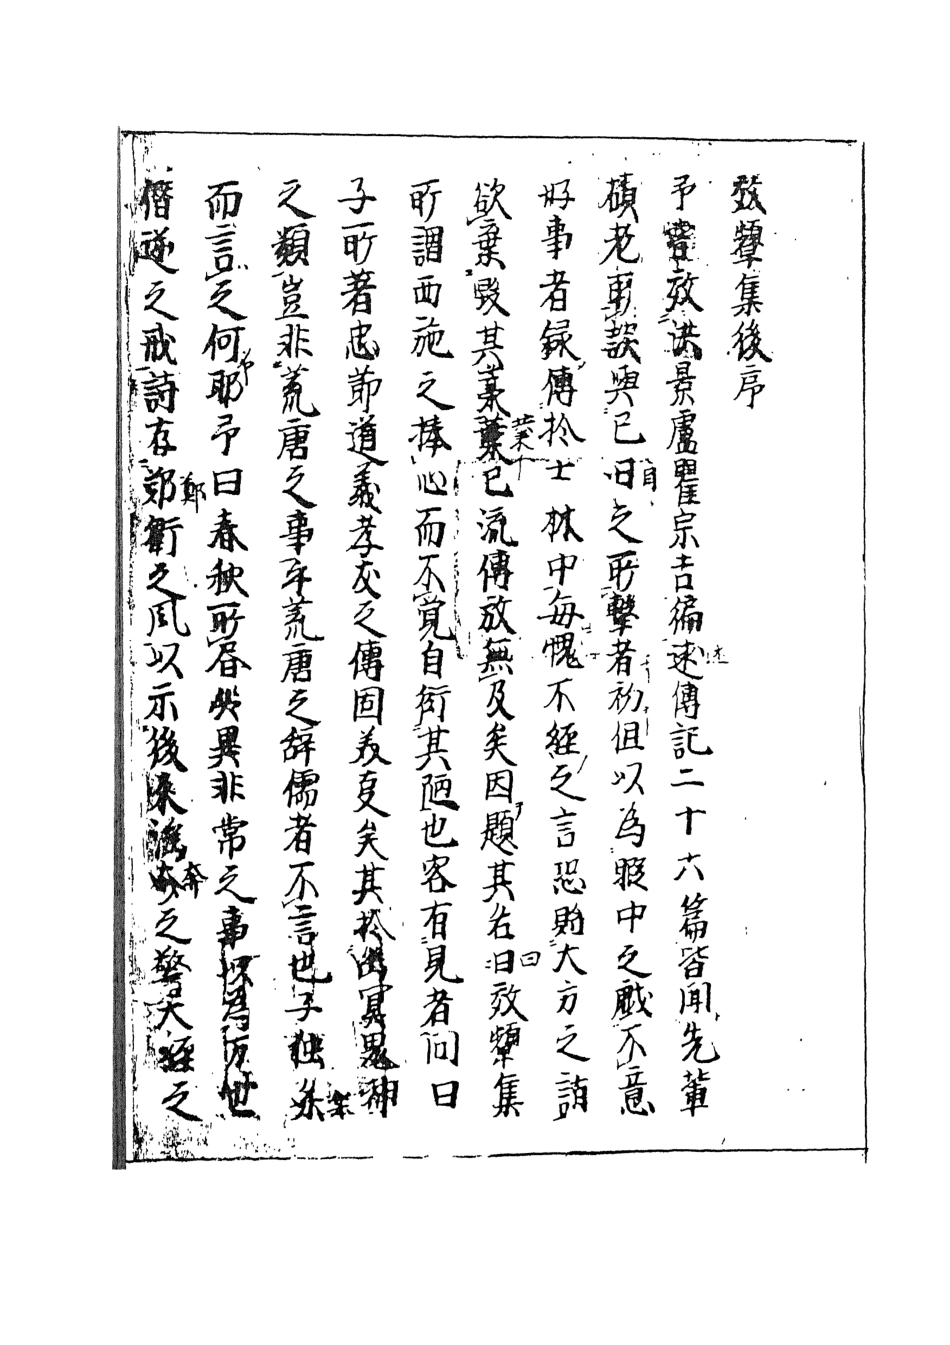 效顰集後序
予嘗效洪景盧瞿宗吉編述傳記二十六篇皆聞先輩
碩老動談與己目之所擊者初但以為暇中之戲不意
好事者錄傳於士林中每愧不經之言恐貽大方之誚
欲棄毀其藁業已流傳放無及矣因題其名曰效顰集
所謂西施之捧心而不覚自衒其陋也客有見者问曰
子所著忠節道義孝友之傳固美矣其於幽冥鬼神
之類豈非荒唐之事乎荒唐之辞儒者不言也子独樂
而言之何耶予曰春秋所書災異非常之事以為万世
僭逆之戒詩存鄭衛之風以示後来淫奔之警大經之